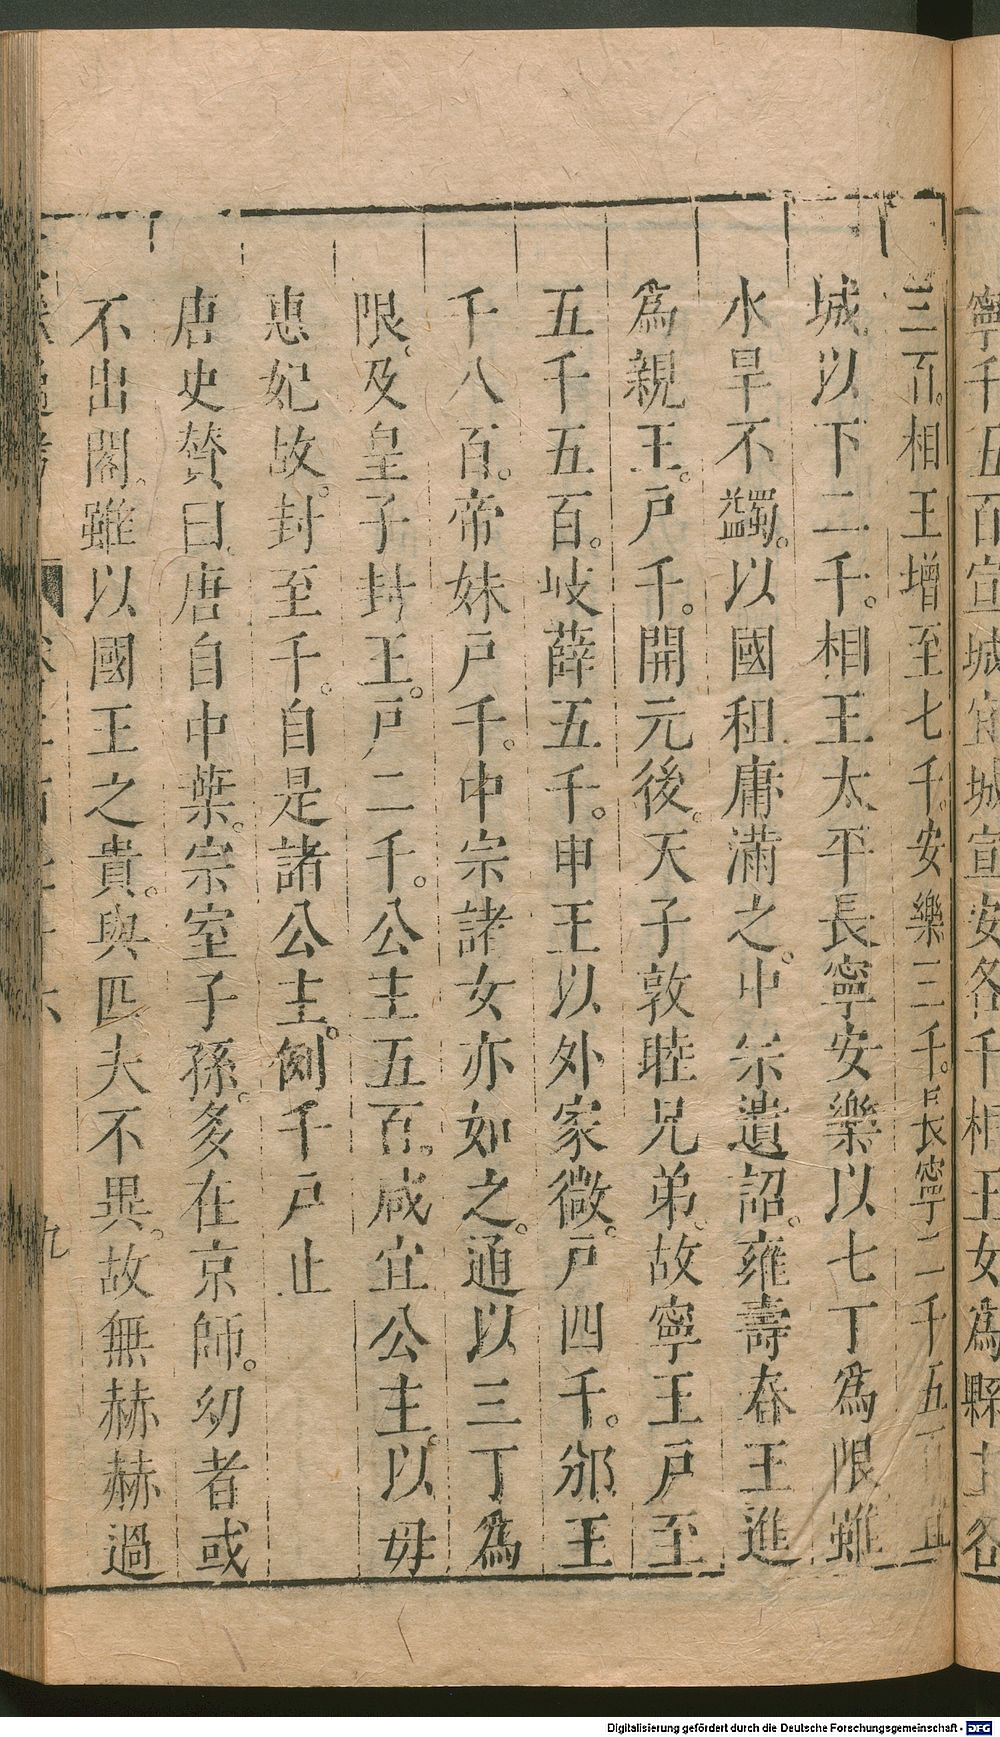 寧千五百宣城宜城宣安各千相王女爲縣主各
三百相王增至七千安樂三千長寧二千五百宜
城以下二千相王太平長寧安樂以七丁爲限雖
水旱不蠲以國租庸滿之中宗遺詔雍壽春王進
爲親王戶千開元後天子敦睦兄弟故寧王戶至
五千五百岐薛五千申王以外家微戶四千邠王
千八百帝妹戶千中宗諸女亦如之通以三丁爲
限及皇子封王戶二千公主五百咸宜公主以母
惠妃故封至千自是諸公主例千戶止
唐史贊曰唐自中葉宗室子孫多在京師幼者或
不出閣雖以國王之貴與匹夫不異故無赫赫過
九
Digitalisierung gefördert durch die Deutsche Forschungsgemeinschaft - DFG